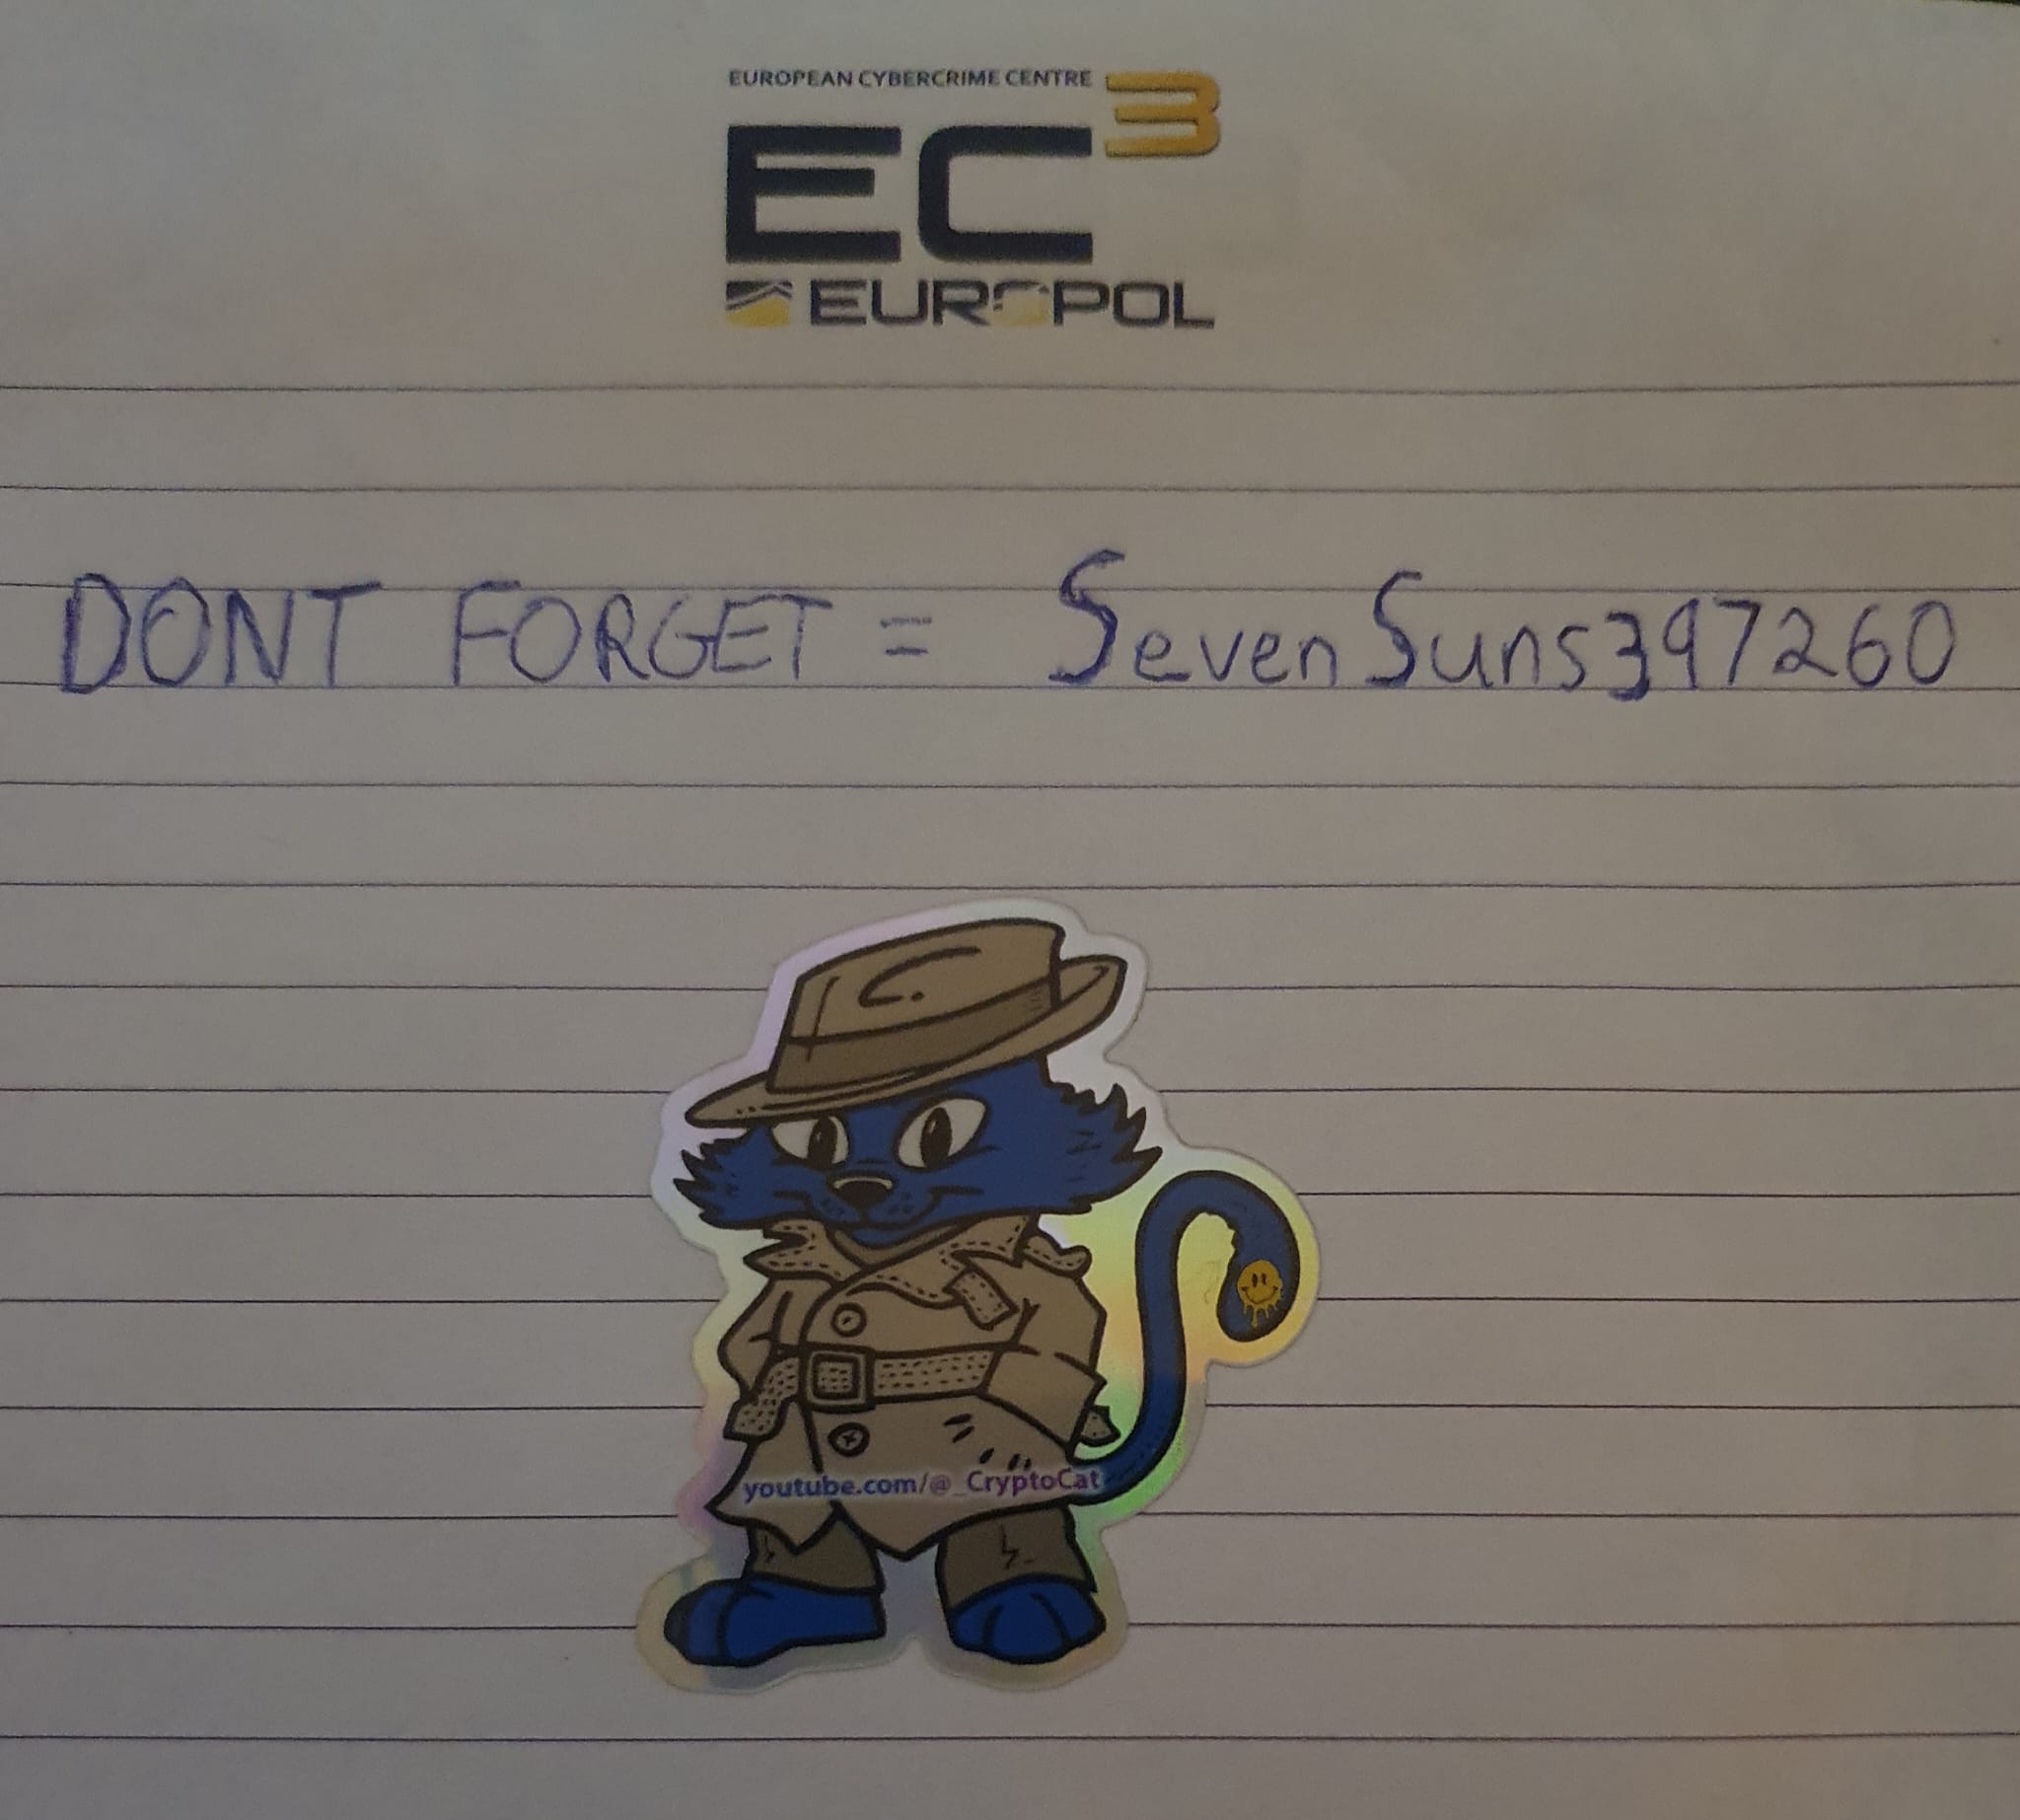 EUROPEAN CYBERCRIME CENTRE
EC3
EUROPOL
DONT FORGET = SevenSuns397260
youtube.com/@_CryptoCat